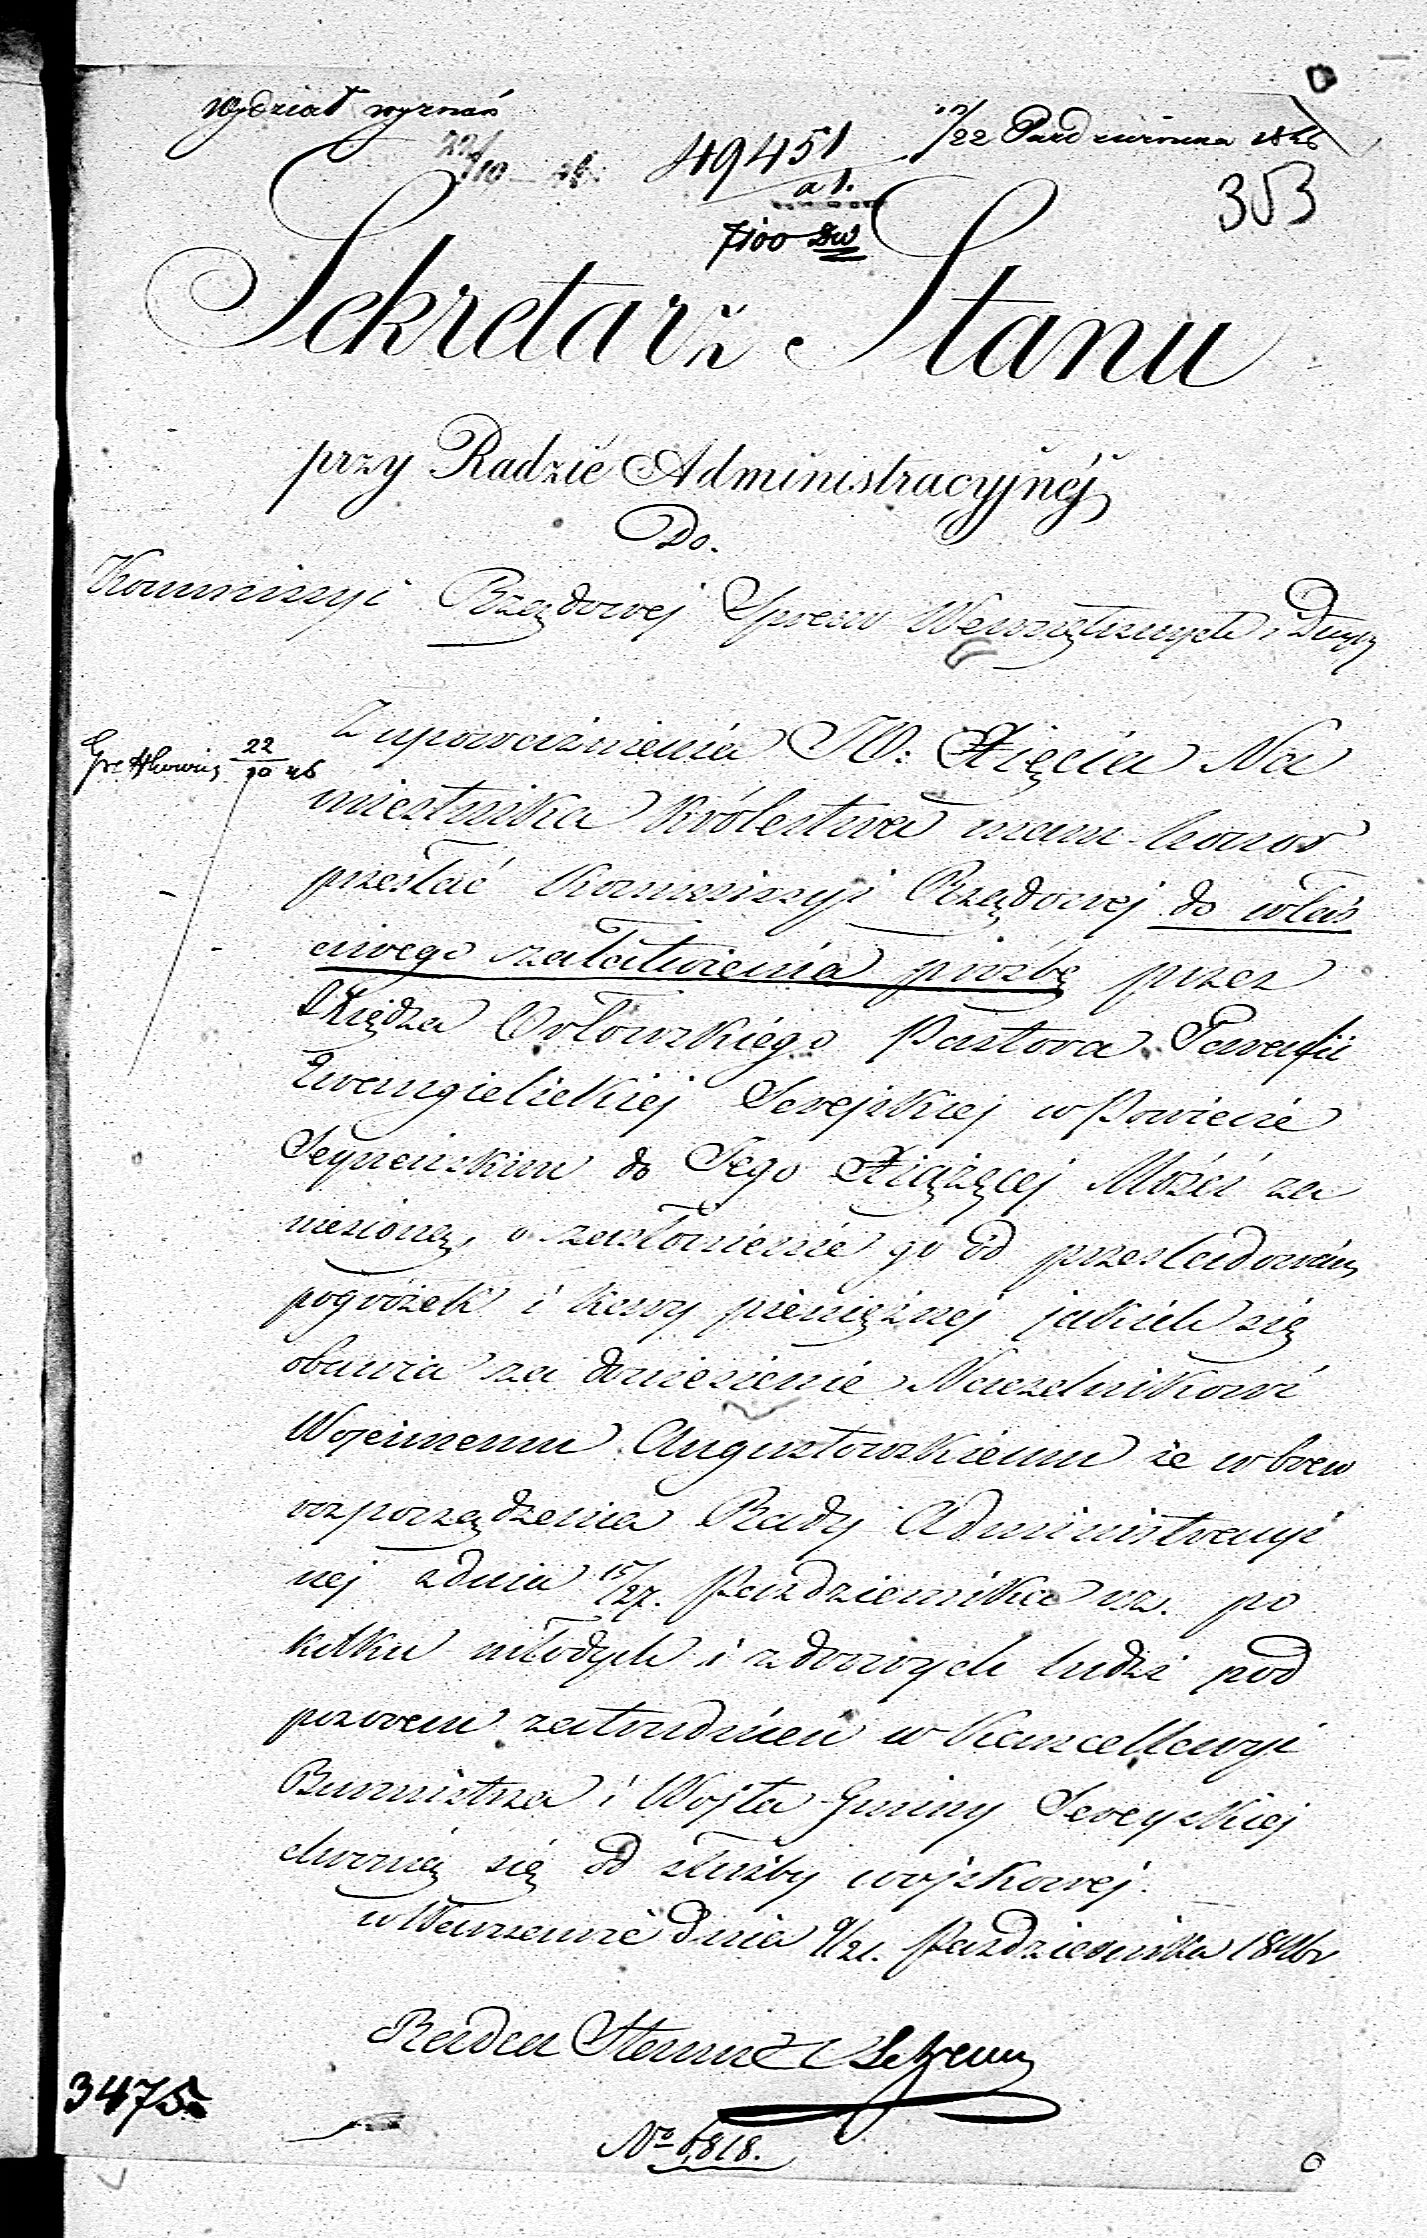 Wydział wyznań
10/22 Października 1846
49451
a 1.
7100 Dw
353
Sekretarz Stanu
przy Radzie Administracyjnéj
Do.
Kommissyi Rządowej Spraw Wewnętrznych i Duch
22/10 46
Z upoważnienia JO: Xięcia Na
miestnika Królestwa mam honor
przesłać Kommissyi Rządowej do właś
ciwego załatwienia prożbę przez
Xiędza Orłowskiego Pastora Parafii
Ewangielickiej Serejskiej w Powiecie
Seyneńskim do Jego Xiążęcej Mości za
niesioną, o zasłonienie go od prześladowań,
pogróżek i kary pieniężnej jakich się
obawia za doniesienie Naczelnikowi
Wojennemu Augustowskiemu że wbrew
rozporządzenia Rady Administracyi
nej z dnia 15/27. Października rz. po
kilku młodych i zdrowych ludzi pod
pozorem zatrudnień w Kancellaryi
Burmistrza i Wojta Gminy Sereyskiej
chronią się od służby wojskowej.
w Warszawie dnia 9/21. Października 1846r
Radca Stanu
3475
No 6,818.